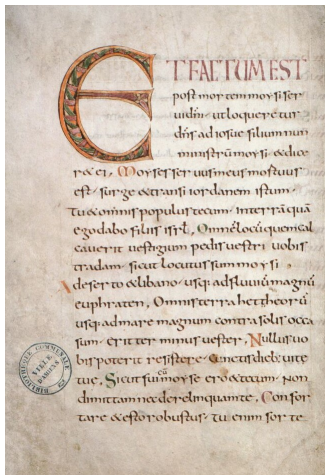 ET FACTUM EST
post mortem moysi ser
ui dni. ut loqueretur
dns ad iosue filium nun
ministrum moysi. & dice
r& ei. Moyses seruus meus mortuus
est. surge & transi iordanem istum.
tu & omnis populus tecum. In terrā quā
ego dabo filiis isrl. Omnē locū quem cal
cauerit uestigium pedis uestri uobis
tradam. sicut locutus sum moysi.
A deserto & libano usq; ad fluuiū magnū
euphraten. Omnis terra hettheorū
usq; ad mare magnum contra solis occa
sum. erit terminus uester. Nullus uo
bis poterit resistere. cunctis dieb; uitę
tuę. Sicut fui cū moyse ero & tecum. Non
dimittam nec derelinquam te. Confor
tare & esto robustus. tu enim sorte
BIBLIOTHEQUE COMMUNALE
VILLE
D'AMIENS